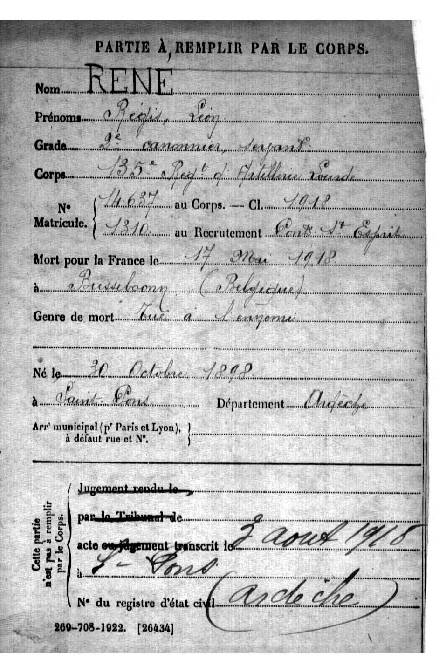 PARTIE À REMPLIR PAR LE CORPS.
Nom RENE
Prénoms Régis, Léon
Grade 2e canonnier, servant
Corps 135e Regt d'Artillerie Lourde
N° Matricule. 14.637 au Corps. — Cl. 1918
1310 au Recrutement Pont St Esprit
Mort pour la France le 17 Mai 1918
à (Belgique)
Genre de mort Tué à l'ennemi
Né le 30 Octobre 1898
à Saint Pons Département Ardèche
Arrt municipal (pr Paris et Lyon), à défaut rue et N°.
Cette partie n'est pas à remplir par le Corps.
Jugement rendu le
par le Tribunal de
acte ou jugement transcrit le 3 aout 1918
à St-Pons
N° du registre d'état civil (ardèche)
269-708-1922. [26434]